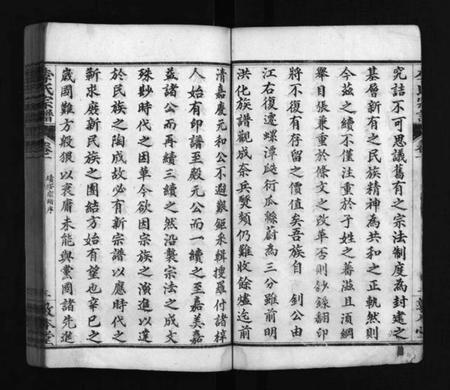 究詰不可思議舊有之宗法制度為封建之
基層新有之民族精神為共和之正軌然則
今茲之續不僅注重於子姓之蕃滋且須綱
舉目張兼重於條文之改革否則鈔錄翻印
將不復有存留之價值矣吾族自 釗公由
江右復遷螺潭瓞衍瓜緜蔚為三分雖前明
洪化族譜觀成奈兵燹頻仍難收餘爐迄前
清嘉慶元和公不避艱鉅釆輯搜羅付諸梓
人始有印譜至殿元公而一續之至嘉美嘉
益諸公而再續三續之然沿襲宗法之成文
殊眇時代之因革今欲因宗族之演進以達
於民族之陶成故必有新宗譜以應時代之
新求廢新民族之團結方始有望也辛巳之
歲國難方殷猥以衰庸未能與黨國諸先進
李氏宗譜
卷一
續修宗譜序
敦本堂